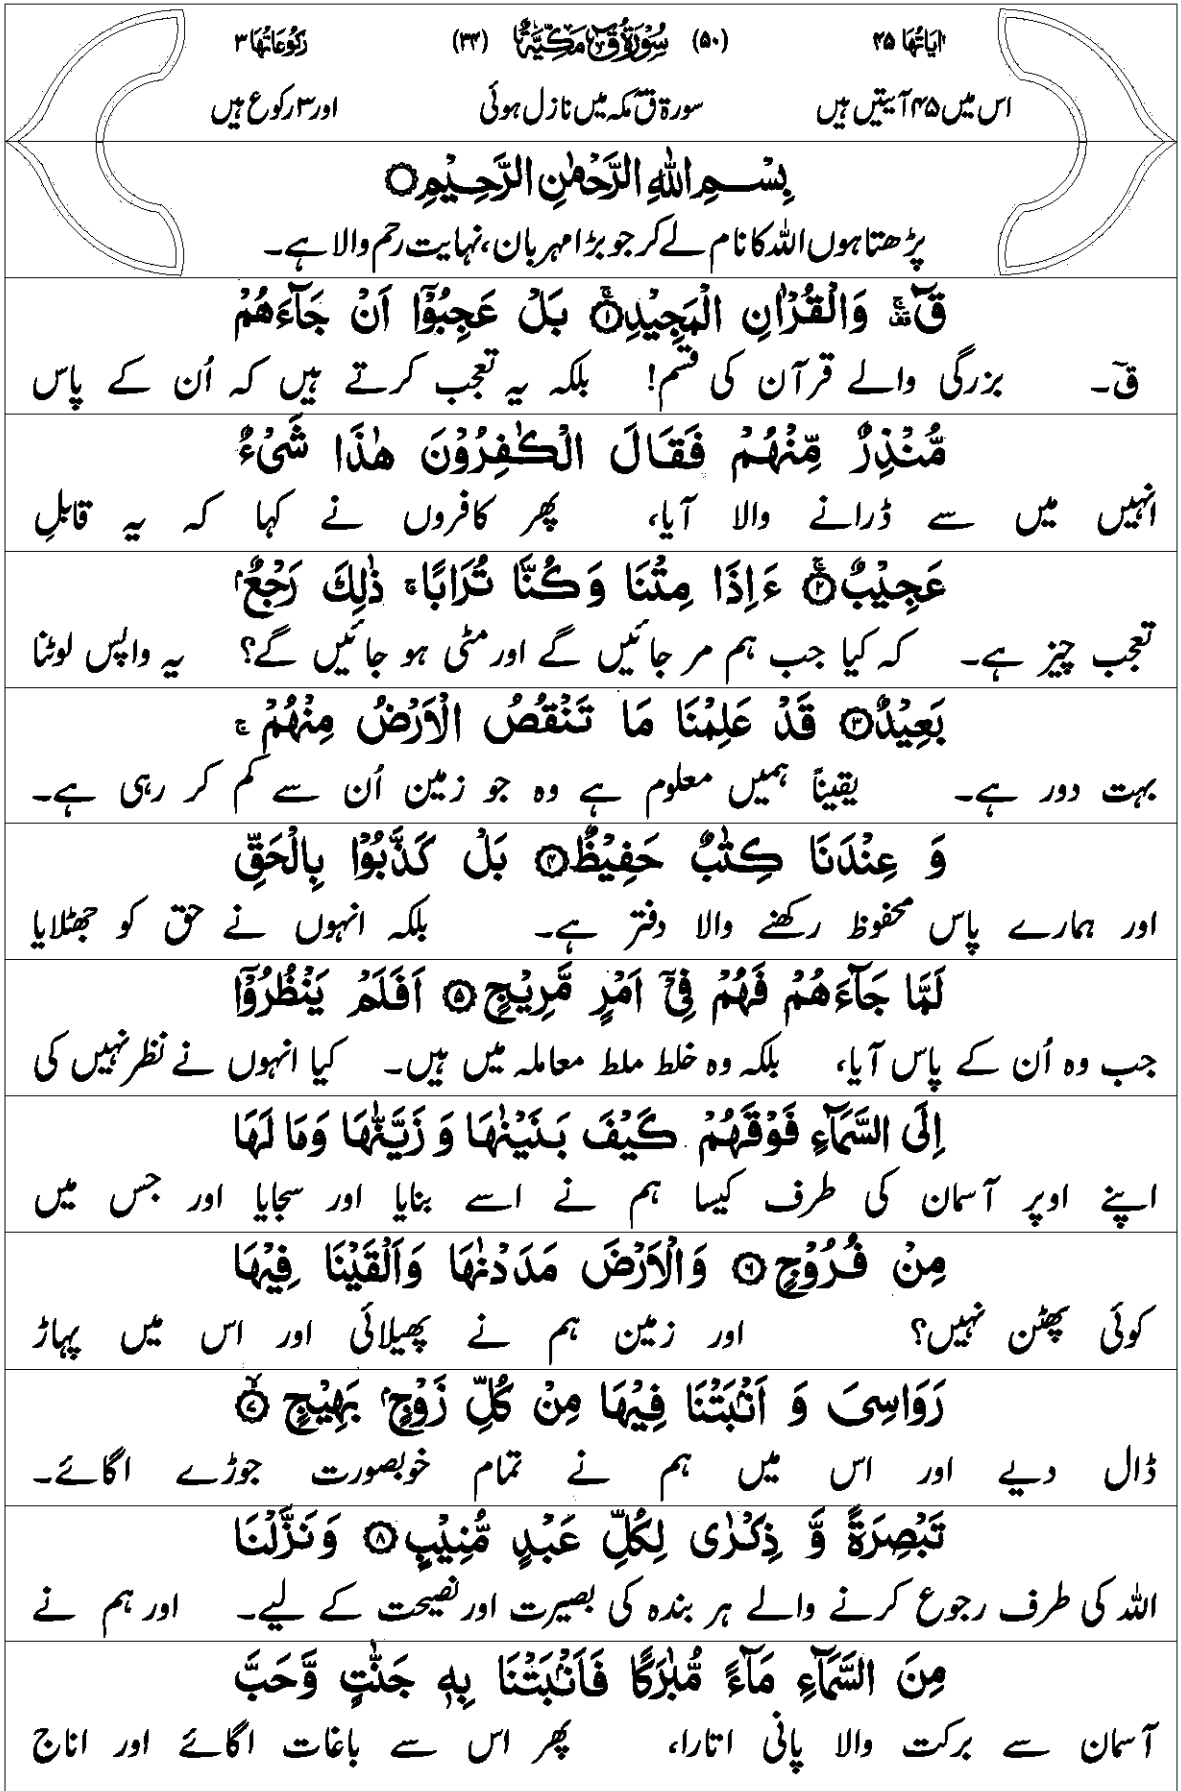 اٰیَاتُهَا ۴۵ (۵۰) سُوْرَةُ قٓ مَكِّيَّةٌ (۳۴) رُكُوْعَاتُهَا ۳
اس میں ۴۵ آیتیں ہیں سورۃ قٓ مکہ میں نازل ہوئی اور ۳ رکوع ہیں
بِسْمِ اللّٰهِ الرَّحْمٰنِ الرَّحِيْمِ
پڑھتا ہوں اللہ کا نام لے کر جو بڑا مہربان، نہایت رحم والا ہے۔
قٓ ۚ وَالْقُرْاٰنِ الْمَجِيْدِ ۝۱ بَلْ عَجِبُوْٓا اَنْ جَآءَهُمْ
قٓ۔ بزرگی والے قرآن کی قسم! بلکہ یہ تعجب کرتے ہیں کہ اُن کے پاس
مُّنْذِرٌ مِّنْهُمْ فَقَالَ الْكٰفِرُوْنَ هٰذَا شَيْءٌ
انہیں میں سے ڈرانے والا آیا، پھر کافروں نے کہا کہ یہ قابلِ
عَجِيْبٌ ۝۲ ءَاِذَا مِتْنَا وَكُنَّا تُرَابًا ۚ ذٰلِكَ رَجْعٌۢ
تعجب چیز ہے۔ کہ کیا جب ہم مر جائیں گے اور مٹی ہو جائیں گے؟ یہ واپس لوٹنا
بَعِيْدٌ ۝۳ قَدْ عَلِمْنَا مَا تَنْقُصُ الْاَرْضُ مِنْهُمْ ۚ
بہت دور ہے۔ یقیناً ہمیں معلوم ہے وہ جو زمین اُن سے کم کر رہی ہے۔
وَ عِنْدَنَا كِتٰبٌ حَفِيْظٌ ۝۴ بَلْ كَذَّبُوْا بِالْحَقِّ
اور ہمارے پاس محفوظ رکھنے والا دفتر ہے۔ بلکہ انہوں نے حق کو جھٹلایا
لَمَّا جَآءَهُمْ فَهُمْ فِيْٓ اَمْرٍ مَّرِيْجٍ ۝۵ اَفَلَمْ يَنْظُرُوْٓا
جب وہ اُن کے پاس آیا، بلکہ وہ خلط ملط معاملہ میں ہیں۔ کیا انہوں نے نظر نہیں کی
اِلَى السَّمَآءِ فَوْقَهُمْ كَيْفَ بَنَيْنٰهَا وَ زَيَّنّٰهَا وَمَا لَهَا
اپنے اوپر آسمان کی طرف کیسا ہم نے اسے بنایا اور سجایا اور جس میں
مِنْ فُرُوْجٍ ۝۶ وَالْاَرْضَ مَدَدْنٰهَا وَاَلْقَيْنَا فِيْهَا
کوئی پھٹن نہیں؟ اور زمین ہم نے پھیلائی اور اس میں پہاڑ
رَوَاسِيَ وَ اَنْۢبَتْنَا فِيْهَا مِنْ كُلِّ زَوْجٍۭ بَهِيْجٍ ۝۷
ڈال دیے اور اس میں ہم نے تمام خوبصورت جوڑے اگائے۔
تَبْصِرَةً وَّ ذِكْرٰى لِكُلِّ عَبْدٍ مُّنِيْبٍ ۝۸ وَنَزَّلْنَا
اللہ کی طرف رجوع کرنے والے ہر بندہ کی بصیرت اور نصیحت کے لیے۔ اور ہم نے
مِنَ السَّمَآءِ مَآءً مُّبٰرَكًا فَاَنْۢبَتْنَا بِهٖ جَنّٰتٍ وَّحَبَّ
آسمان سے برکت والا پانی اتارا، پھر اس سے باغات اگائے اور اناج